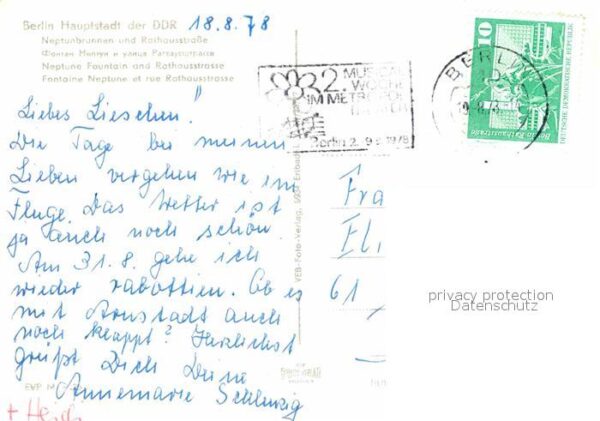 Berlin Hauptstadt der DDR 18.8.78
Neptunbrunnen und Rathausstraße
Фонтан Нептун и улица Ратхаусштрассе
Neptune Fountain and Rathausstrasse
Fontaine Neptune et rue Rathausstrasse
Liebes Lieschen!
Die Tage bei meinen
Lieben vergehen wie im
Fluge. Das Wetter ist
ja auch noch schön.
Am 31.8. gehe ich
wieder
Ob es
mit Arnstadt auch
noch klappt? Herzlichst
grüßt Dich Deine
Annemarie
EVP
+ Heidi
VEB-Foto-Verlag, 9934 Erlbach
2. MUSICAL
WOCHE
IM METROPOL
THEATER
Berlin 2.-9.9.1978
BERLIN
10
DEUTSCHE DEMOKRATISCHE REPUBLIK
Berlin, Rathausstraße
Fra
El
61
privacy protection
Datenschutz